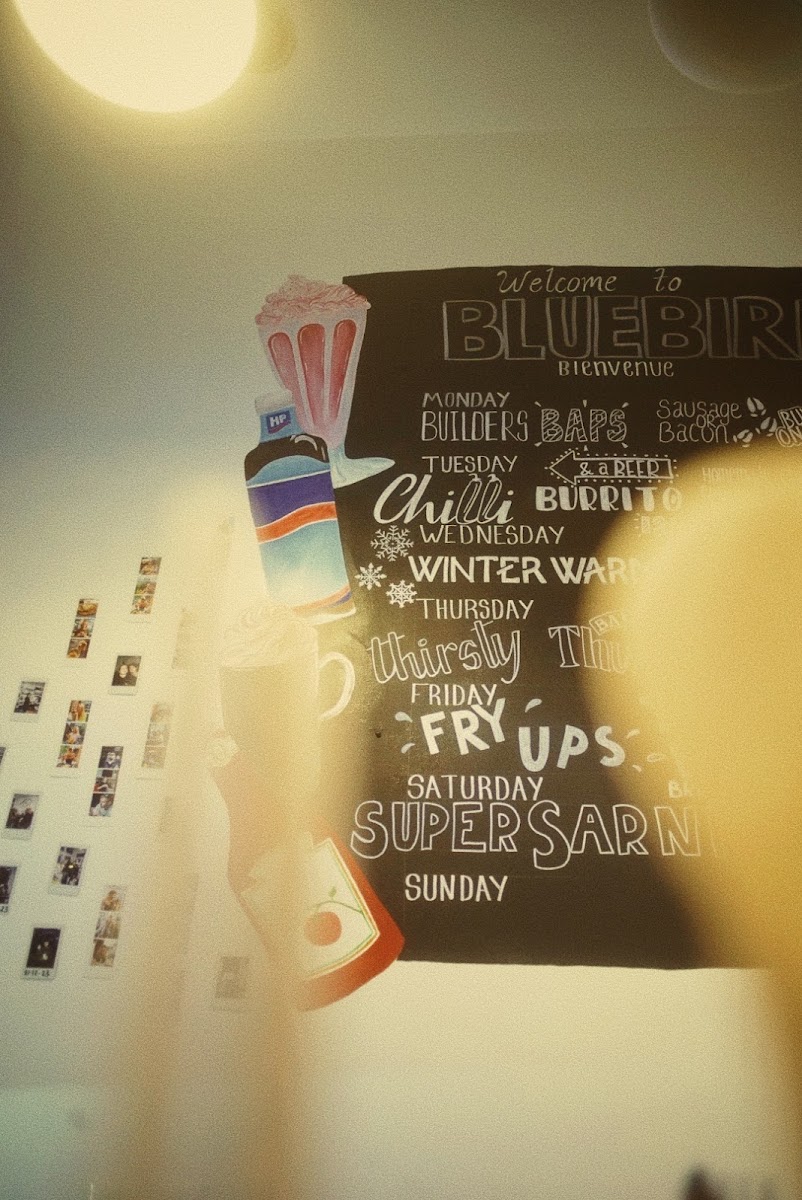 Welcome to
BLUEBIR
Bienvenue
MONDAY
BUILDERS BAPS Sausage OR Bacon
TUESDAY
& a BEER
Chilli BURRITO
WEDNESDAY
WINTER WAR
THURSDAY
thirsty
FRIDAY
FRY UPS
SATURDAY
SUPER SARN
SUNDAY
HP